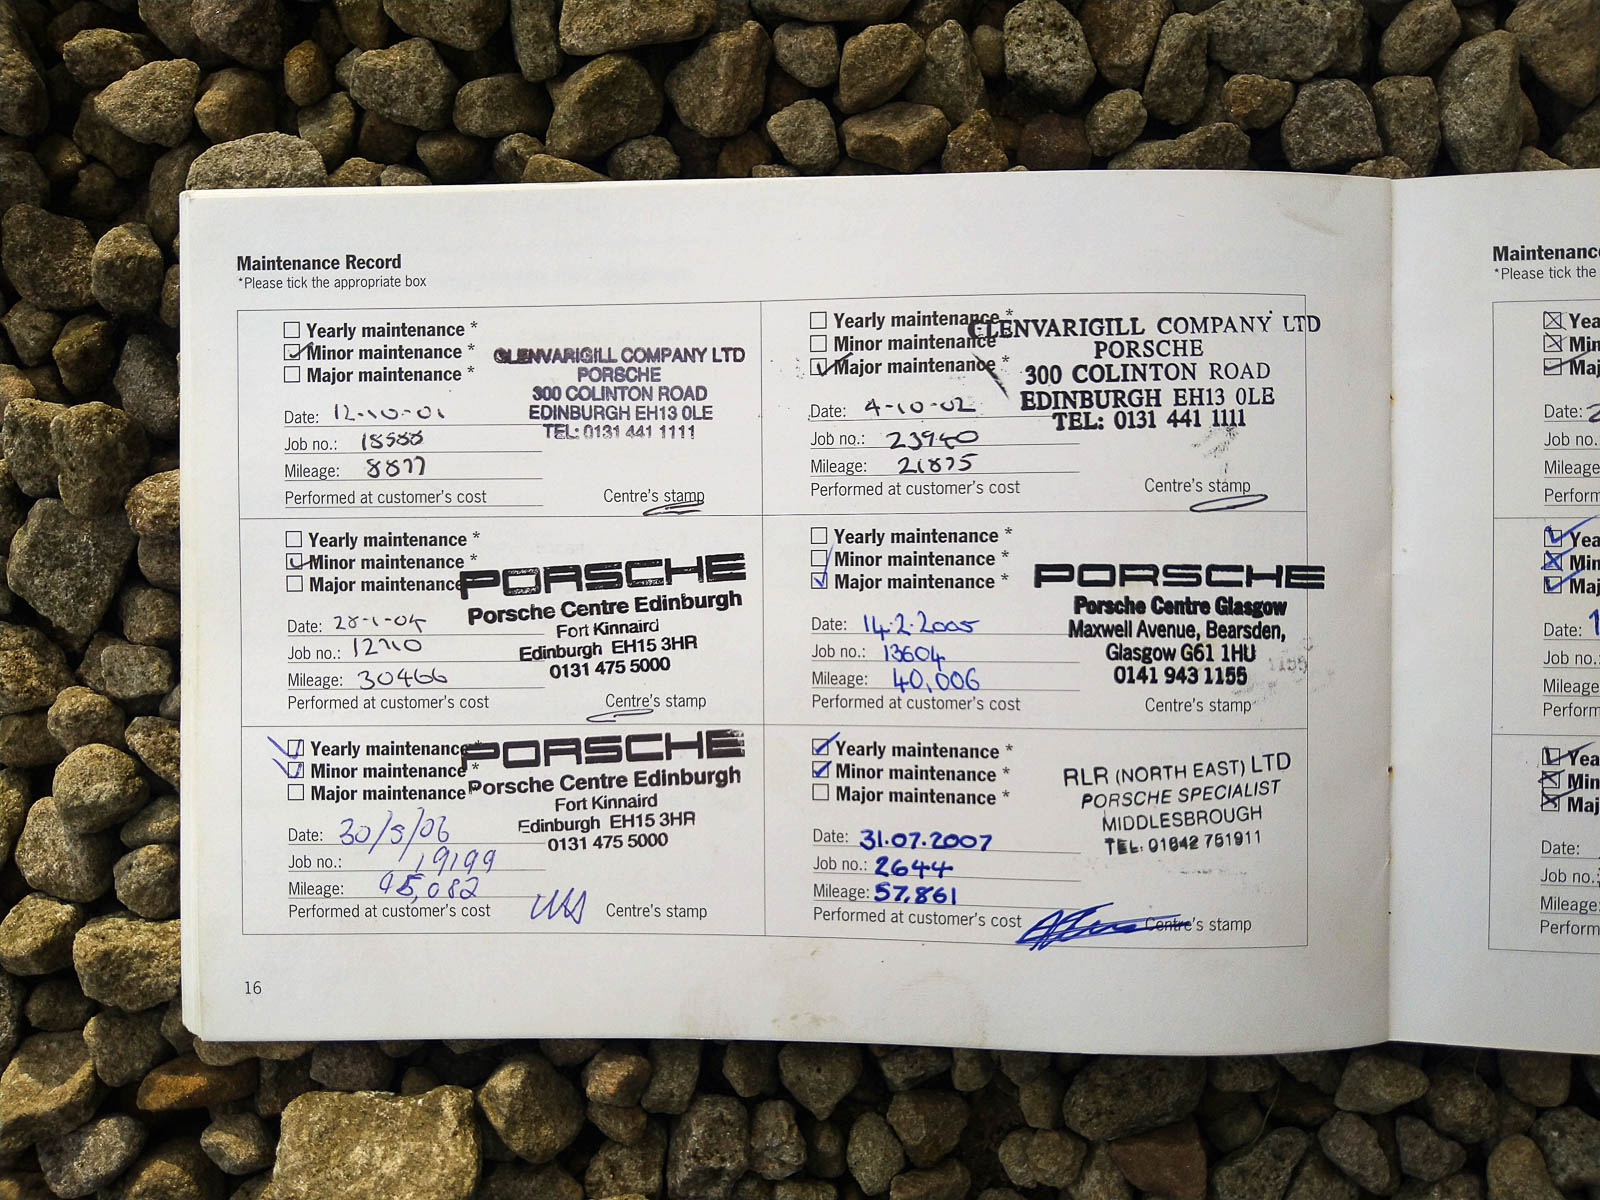 Maintenance Record
*Please tick the appropriate box
Yearly maintenance *
Minor maintenance *
Major maintenance *
GLENVARIGILL COMPANY LTD
PORSCHE
300 COLINTON ROAD
EDINBURGH EH13 0LE
TEL: 0131 441 1111
Date: 12-10-01
Job no.: 18588
Mileage: 8877
Performed at customer's cost
Centre's stamp
Yearly maintenance *
Minor maintenance
Major maintenance *
GLENVARIGILL COMPANY LTD
PORSCHE
300 COLINTON ROAD
EDINBURGH EH13 0LE
TEL: 0131 441 1111
Date: 4-10-02
Job no.: 23940
Mileage: 21875
Performed at customer's cost
Centre's stamp
Yearly maintenance *
Minor maintenance *
Major maintenance
PORSCHE
Porsche Centre Edinburgh
Fort Kinnaird
Edinburgh EH15 3HR
0131 475 5000
Date: 28-1-04
Job no.: 12710
Mileage: 30466
Performed at customer's cost
Centre's stamp
Yearly maintenance *
Minor maintenance *
Major maintenance *
PORSCHE
Porsche Centre Glasgow
Maxwell Avenue, Bearsden,
Glasgow G61 1HU
0141 943 1155
Date: 14.2.2005
Job no.: 13604
Mileage: 40,006
Performed at customer's cost
Centre's stamp
Yearly maintenance
Minor maintenance *
Major maintenance
PORSCHE
Porsche Centre Edinburgh
Fort Kinnaird
Edinburgh EH15 3HR
0131 475 5000
Date: 30/5/06
Job no.: 19199
Mileage: 45,082
Performed at customer's cost
Centre's stamp
Yearly maintenance *
Minor maintenance *
Major maintenance *
RLR (NORTH EAST) LTD
PORSCHE SPECIALIST
MIDDLESBROUGH
TEL: 01642 751911
Date: 31.07.2007
Job no.: 2644
Mileage: 57,861
Performed at customer's cost
Centre's stamp
16
Maintenance
*Please tick the
Date:
Job no.
Mileage
Date:
Job no.
Mileage
Date:
Job no.
Mileage